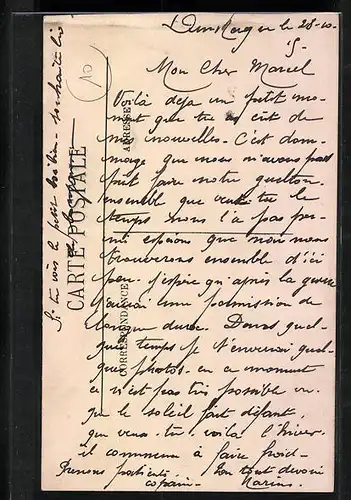 Dunkerque le 28-10-
15-
Mon Cher Marcel
Voilà deja un petit mo-
ment que tu as eut de
mes nouvelles. C'est dom-
mage que nous n'avons pas
put faire notre gueleton
ensemble que veux tu le
temps nous l'a pas per-
mi esperons que nous nous
trouverons ensemble d'ici
peu. j'espere qu'après la guerre
j'aurai une permission de
longue durée. Dans quel-
que temps je t'enverrai quel-
que photos. en ce moment
ce n'est pas très possible vu
que le soleil fait défaut.
que veux-tu voila l'hiver
il commence à faire froid-
Prenons patience. Ton tout devoué
copain- Marius.
Si tu vois le petit souhaite lui
CARTE POSTALE
CORRESPONDANCE
ADRESSE
10